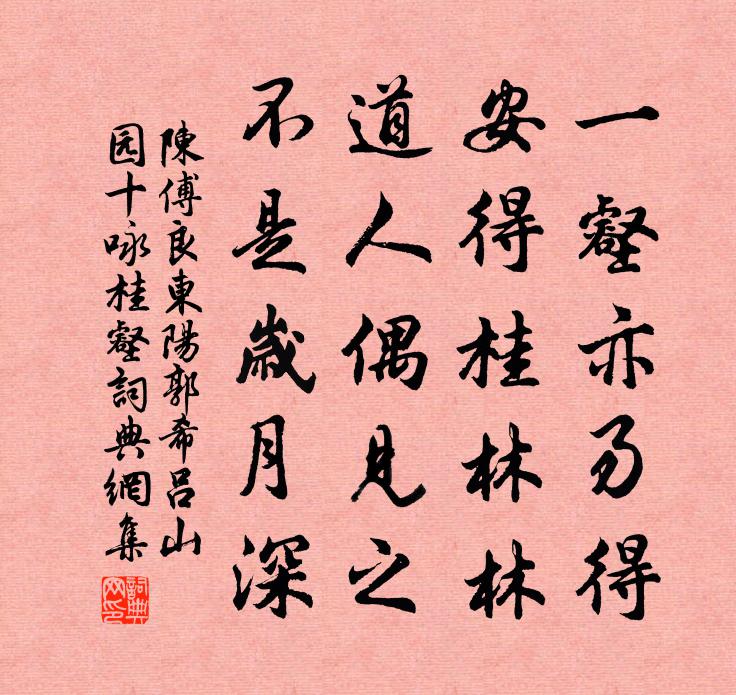 一壑亦易得
安得桂林林
道人偶見之
不是歲月深
陳傅良東陽郭希呂山
园十咏桂壑詞典網集
詞典網印